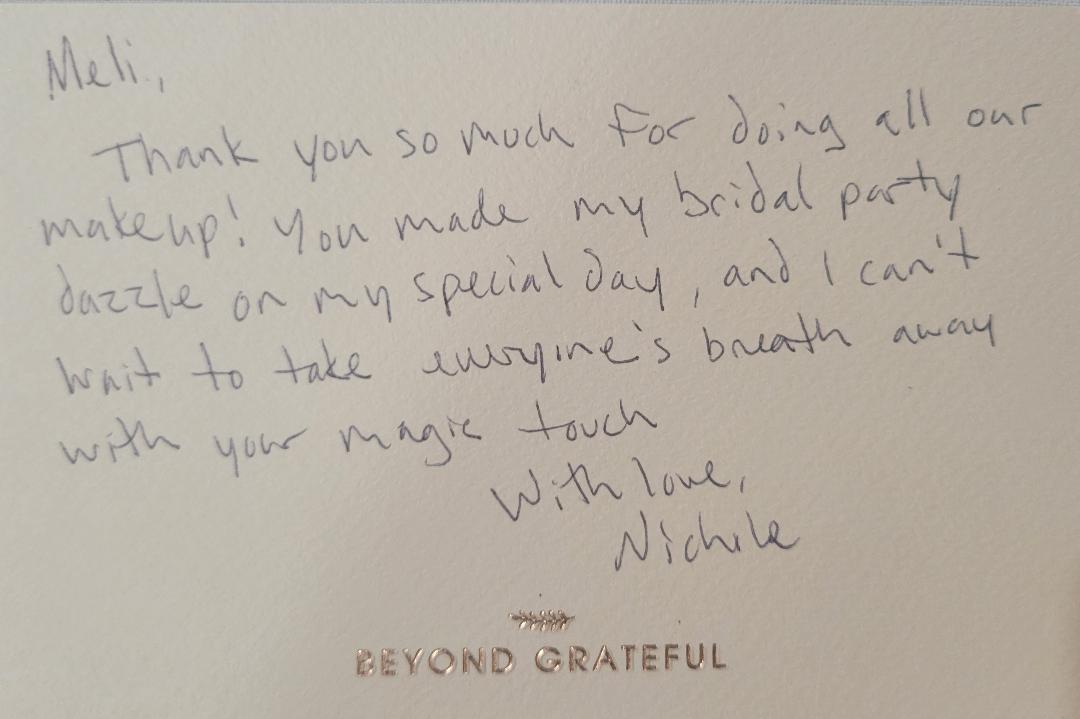 Meli,
Thank you so much for doing all our
makeup! You made my bridal party
dazzle on my special day, and I can't
wait to take everyone's breath away
with your magic touch
With love,
Nichole
BEYOND GRATEFUL